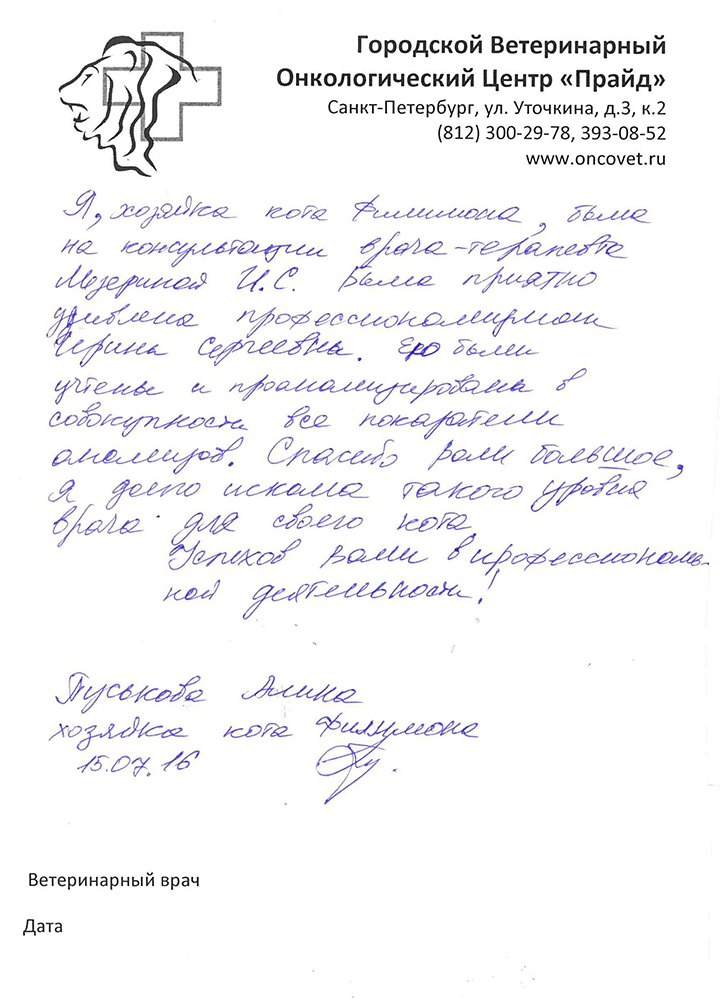 Городской Ветеринарный
Онкологический Центр «Прайд»
Санкт-Петербург, ул. Уточкина, д.3, к.2
(812) 300-29-78, 393-08-52
www.oncovet.ru
Я, хозяйка кота Филимона, была
на консультации врача-терапевта
Мезериной И.С. Была приятно
удивлена профессионализмом
Ирины Сергеевны. Ею были
учтены и проанализированы в
совокупности все показатели
анализов. Спасибо вам большое,
я долго искала такого уровня
врача для своего кота
Успехов вам в профессиональ-
ной деятельности!
Пуськова Алина
хозяйка кота Филимона
15.07.16
Ветеринарный врач
Дата